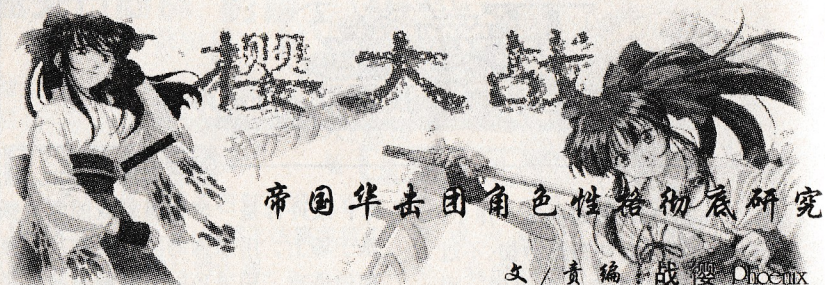 樱大战
サクラ大戦
帝国华击团角色性格彻底研究
文/责编:战樱 Phoenix